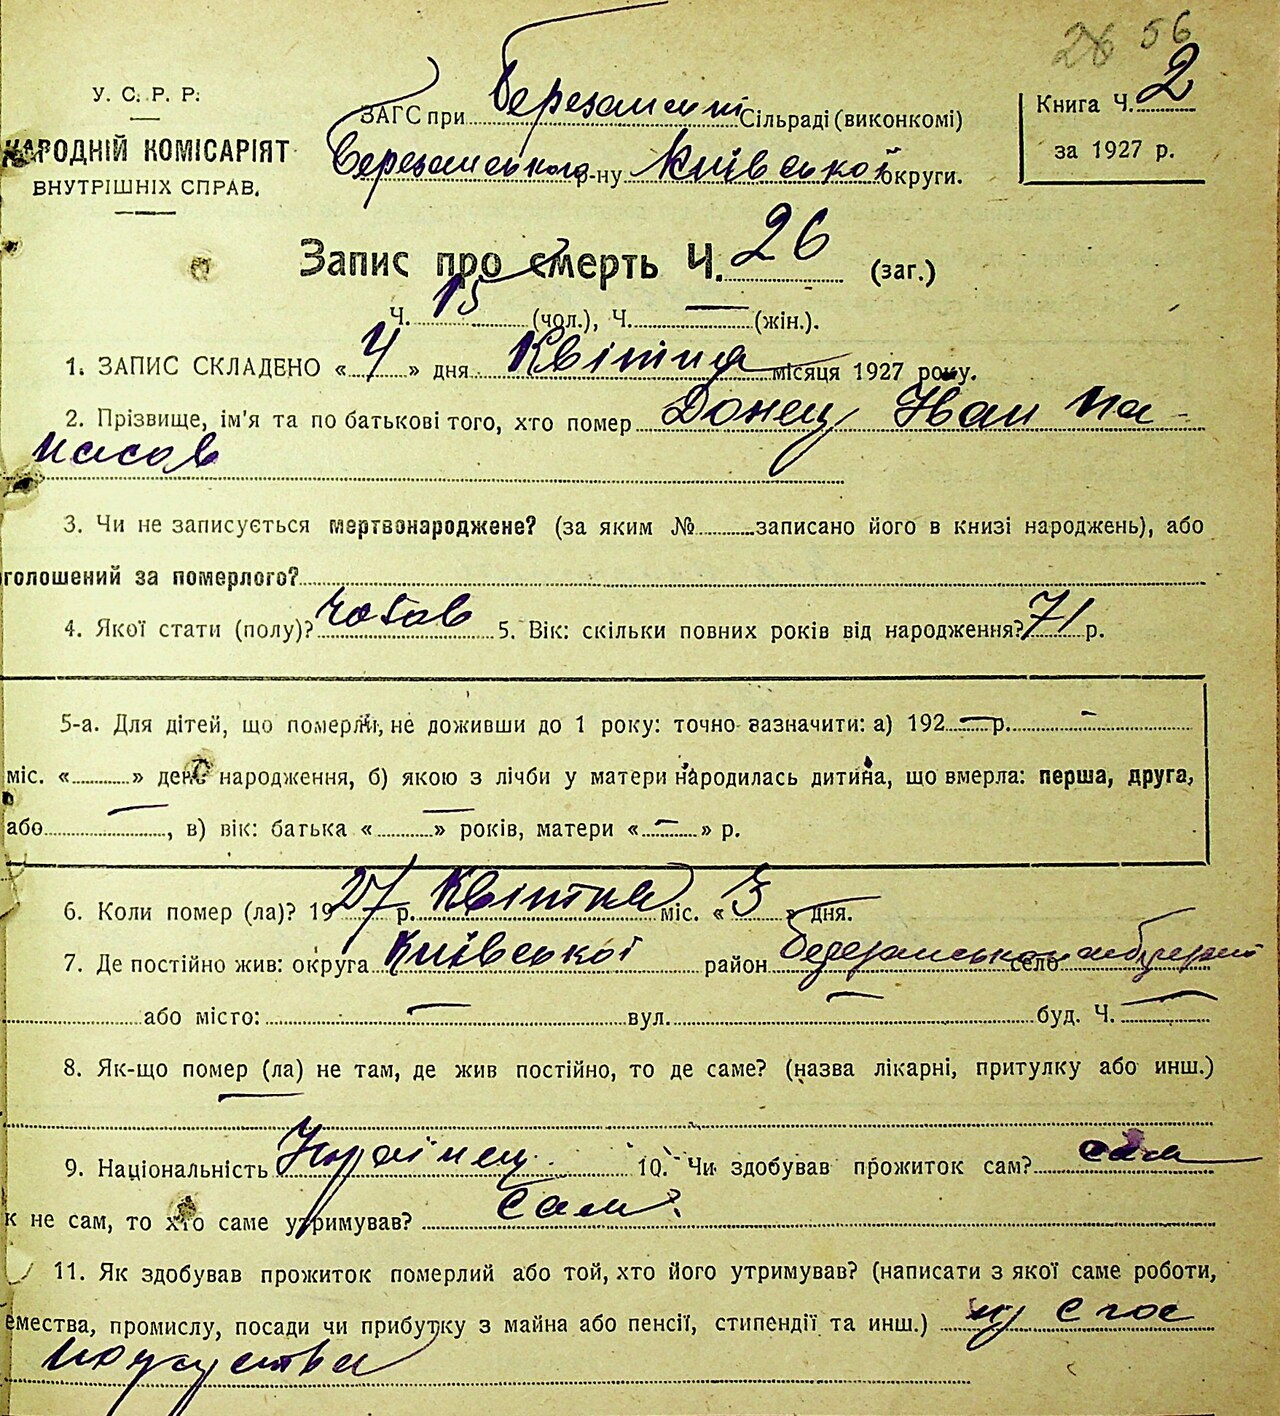 28 56
У. С. Р. Р.
НАРОДНІЙ КОМІСАРІЯТ
ВНУТРІШНІХ СПРАВ.
ЗАГС при Березанскій Сільраді (виконкомі)
Березанського р-ну Київської округи.
Книга Ч. 2
за 1927 р.
Запис про смерть Ч. 26 (заг.)
Ч. 15 (чол.), Ч. — (жін.).
1. ЗАПИС СКЛАДЕНО «4» дня Квітня місяця 1927 року.
2. Прізвище, ім'я та по батькові того, хто помер Донец Иван Па-
насов
3. Чи не записується мертвонароджене? (за яким № записано його в книзі народжень), або
голошений за померлого?
4. Якої стати (полу)? чолов 5. Вік: скільки повних років від народження? 71 р.
5-а. Для дітей, що померли, не доживши до 1 року: точно зазначити: а) 192 — р. —
міс. « » день народження, б) якою з лічби у матери народилась дитина, що вмерла: перша, друга,
або —, в) вік: батька « — » років, матери « — » р.
6. Коли помер (ла)? 1927 р. Квітня міс. «3» дня.
7. Де постійно жив: округа Київської район село
або місто: — вул. — буд. Ч. —
8. Як-що помер (ла) не там, де жив постійно, то де саме? (назва лікарні, притулку або инш.)
—
9. Національність Українец 10. Чи здобував прожиток сам? сам
к не сам, то хто саме утримував? Сам
11. Як здобував прожиток померлий або той, хто його утримував? (написати з якої саме роботи,
емества, промислу, посади чи прибутку з майна або пенсії, стипендії та инш.)